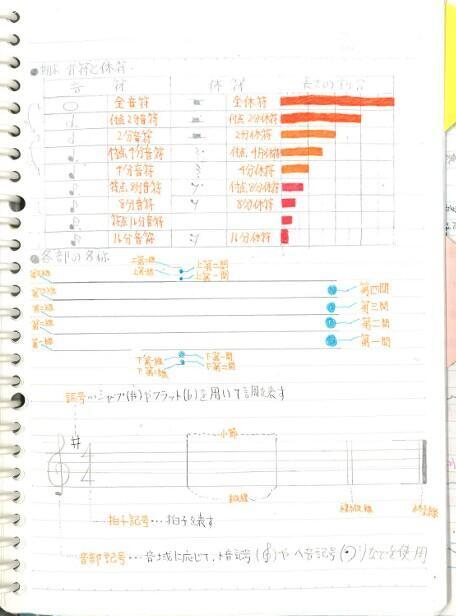 音符と休符
音符 休符 長さの割合
全音符 全休符
付点2分音符 付点2分休符
2分音符 2分休符
付点4分音符 付点4分休符
4分音符 4分休符
付点8分音符 付点8分休符
8分音符 8分休符
付点16分音符
16分音符 16分休符
各部の名称
上第二線 上第二間
上第一線 上第一間
第五線
第四線 第四間
第三線 第三間
第二線 第二間
第一線 第一間
下第一線 下第一間
下第二線 下第二間
調号…シャープ(#)やフラット(♭)を用いて調を表す
小節
4
4
縦線 複縦線 終止線
拍子記号…拍子を表す
音部記号…音域に応じて、ト音記号(𝄞)やヘ音記号(𝄢)などを使用